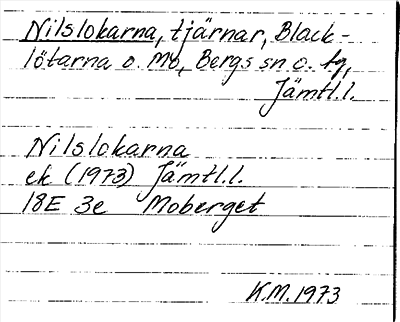 Nilslokarna, tjärnar, Black-
lötarna o. Mo, Bergs sn o. tg,
Jämtl.l.
Nilslokarna
ek (1973) Jämtl.l.
18E 3e Moberget
K.M. 1973